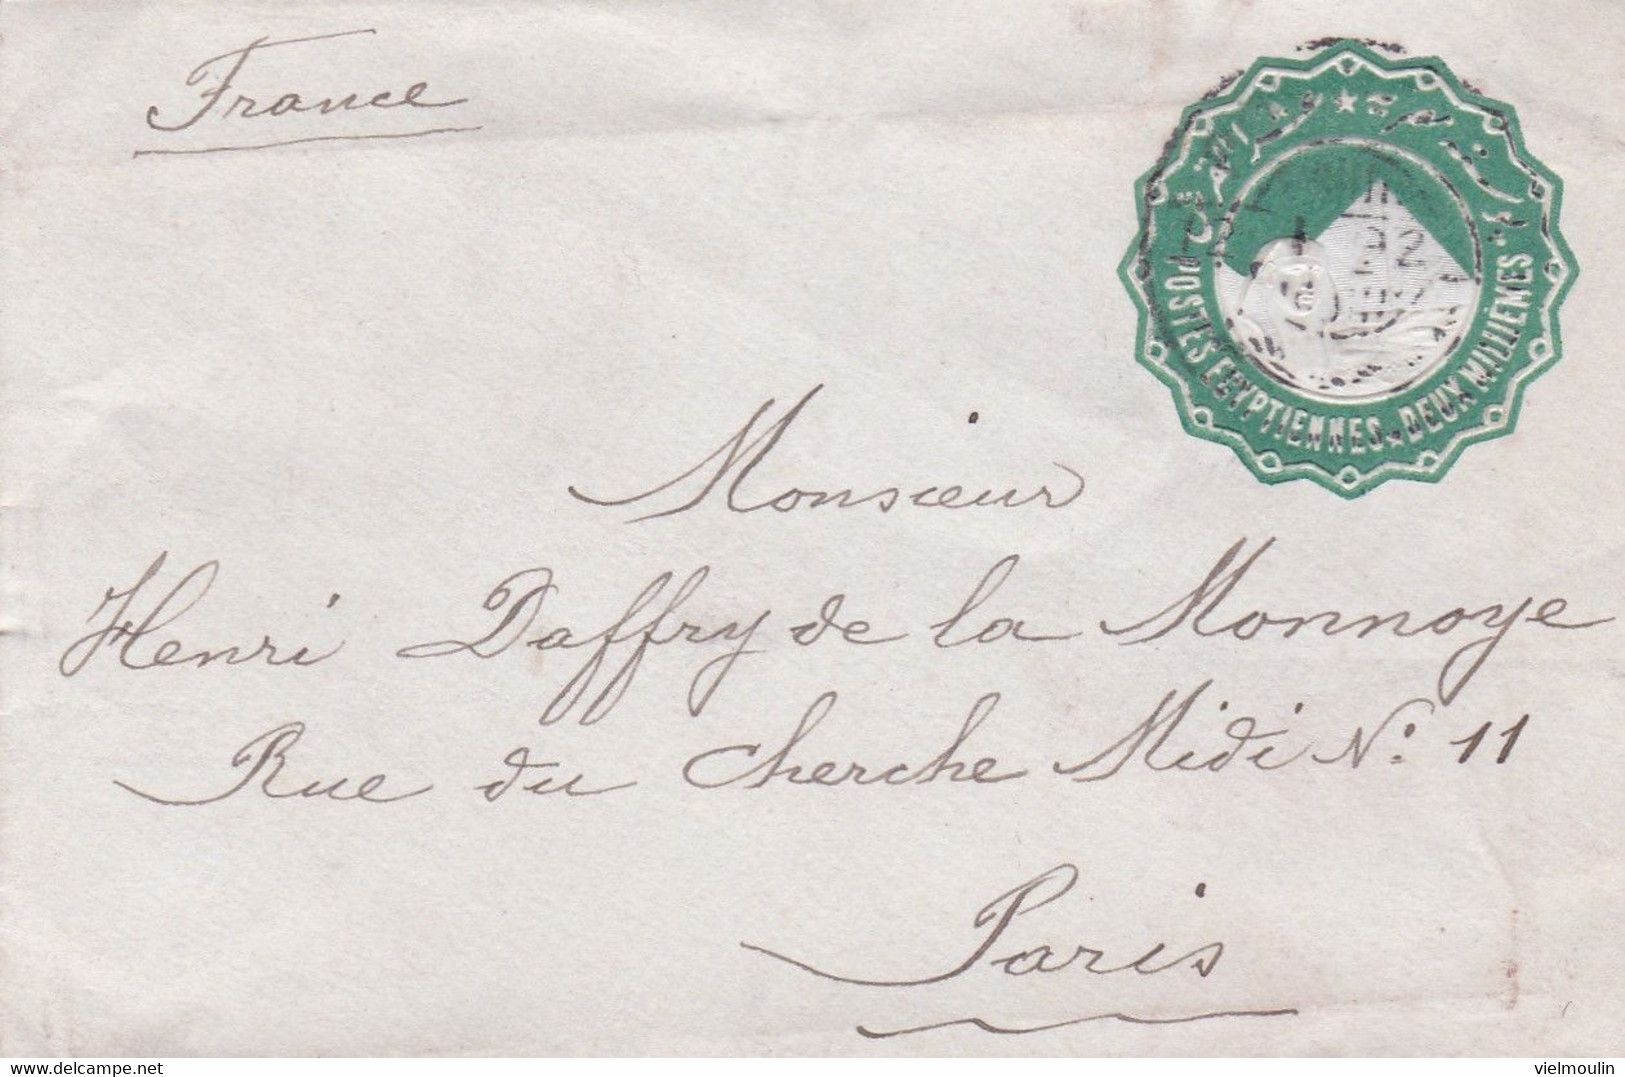 France
POSTES EGYPTIENNES. DEUX MILLIEMES
92
Monsieur
Henri Daffry de la Monnoye
Rue du Cherche Midi No. 11
Paris
delcampe.net
vielmoulin